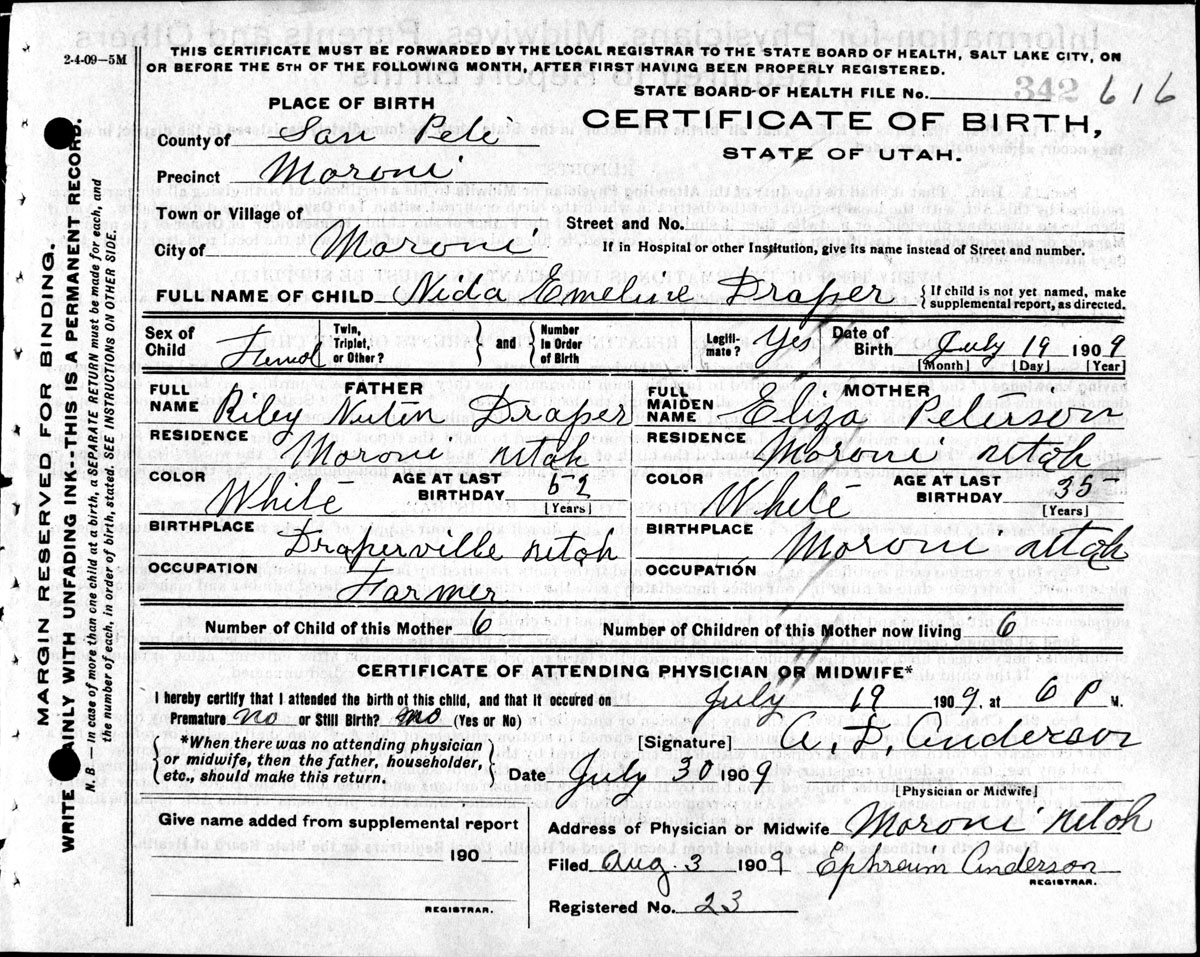 2-4-09-5M
THIS CERTIFICATE MUST BE FORWARDED BY THE LOCAL REGISTRAR TO THE STATE BOARD OF HEALTH, SALT LAKE CITY, ON
OR BEFORE THE 5TH OF THE FOLLOWING MONTH, AFTER FIRST HAVING BEEN PROPERLY REGISTERED.
STATE BOARD OF HEALTH FILE No. 342 616
PLACE OF BIRTH
CERTIFICATE OF BIRTH,
STATE OF UTAH.
County of San Pete
Precinct Moroni
Town or Village of
Street and No.
City of Moroni
If in Hospital or other Institution, give name instead of Street and number.
FULL NAME OF CHILD Nida Emeline Draper {If child is not yet named, make supplemental report, as directed.
Sex of Child Femal Twin, Triplet, or Other? } and { Number in Order of Birth Legiti-mate? Yes Date of Birth July 19 1909
[Month] [Day] [Year]
FATHER
FULL NAME Riley Nutin Draper
RESIDENCE Moroni Utah
COLOR White AGE AT LAST BIRTHDAY 52 [Years]
BIRTHPLACE Draperville Utah
OCCUPATION Farmer
MOTHER
FULL MAIDEN NAME Eliza Peterson
RESIDENCE Moroni Utah
COLOR White AGE AT LAST BIRTHDAY 35 [Years]
BIRTHPLACE Moroni Utah
OCCUPATION
Number of Child of this Mother 6 Number of Children of this Mother now living 6
CERTIFICATE OF ATTENDING PHYSICIAN OR MIDWIFE*
I hereby certify that I attended the birth of this child, and that it occured on July 19 1909, at 6 P M.
Premature no or Still Birth? no (Yes or No)
{*When there was no attending physician or midwife, then the father, householder, etc., should make this return.}
[Signature] A. D. Anderson
Date July 30 1909
[Physician or Midwife]
Give name added from supplemental report
190
REGISTRAR.
Address of Physician or Midwife Moroni Utah
Filed Aug. 3 1909 Ephraim Anderson
REGISTRAR.
Registered No. 23
MARGIN RESERVED FOR BINDING.
WRITE AINLY WITH UNFADING INK-THIS IS A PERMANENT RECORD.
N. B.—In case of more than one child at a birth, a SEPARATE RETURN must be made for each, and
the number of each, in order of birth, stated. SEE INSTRUCTIONS ON OTHER SIDE.